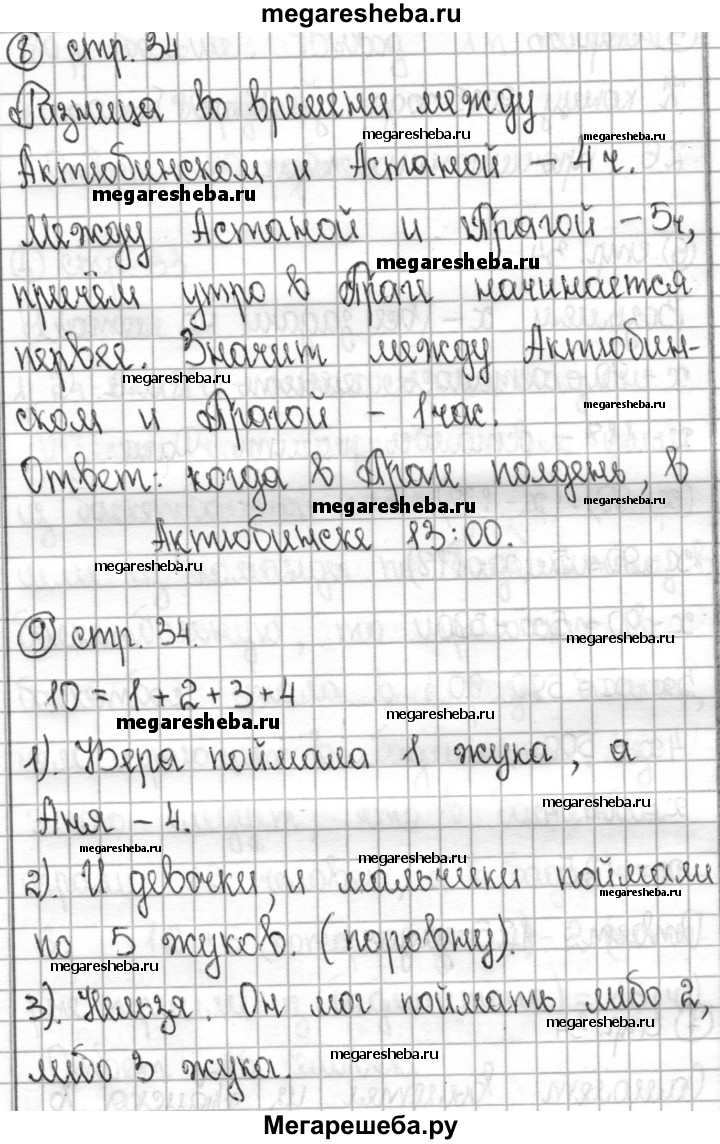 megaresheba.ru
8 стр. 34
Разница во времени между
megaresheba.ru megaresheba.ru
Актюбинском и Астаной – 4 ч.
megaresheba.ru megaresheba.ru
Между Астаной и Прагой – 5ч,
megaresheba.ru
причём утро в Праге начинается
первее. Значит между Актюбин-
megaresheba.ru
ском и Прагой – 1 час.
megaresheba.ru
Ответ: когда в Праге полдень, в
megaresheba.ru megaresheba.ru
Актюбинске 13:00.
megaresheba.ru
9 стр. 34.
megaresheba.ru
10 = 1 + 2 + 3 + 4
megaresheba.ru megaresheba.ru
1). Вера поймала 1 жука, а
megaresheba.ru
Аня – 4.
megaresheba.ru megaresheba.ru
2). И девочки, и мальчики поймали
megaresheba.ru
по 5 жуков. (поровну).
megaresheba.ru
3). Нельзя. Он мог поймать либо 2,
megaresheba.ru
либо 3 жука.
megaresheba.ru
Мегарешеба.ру